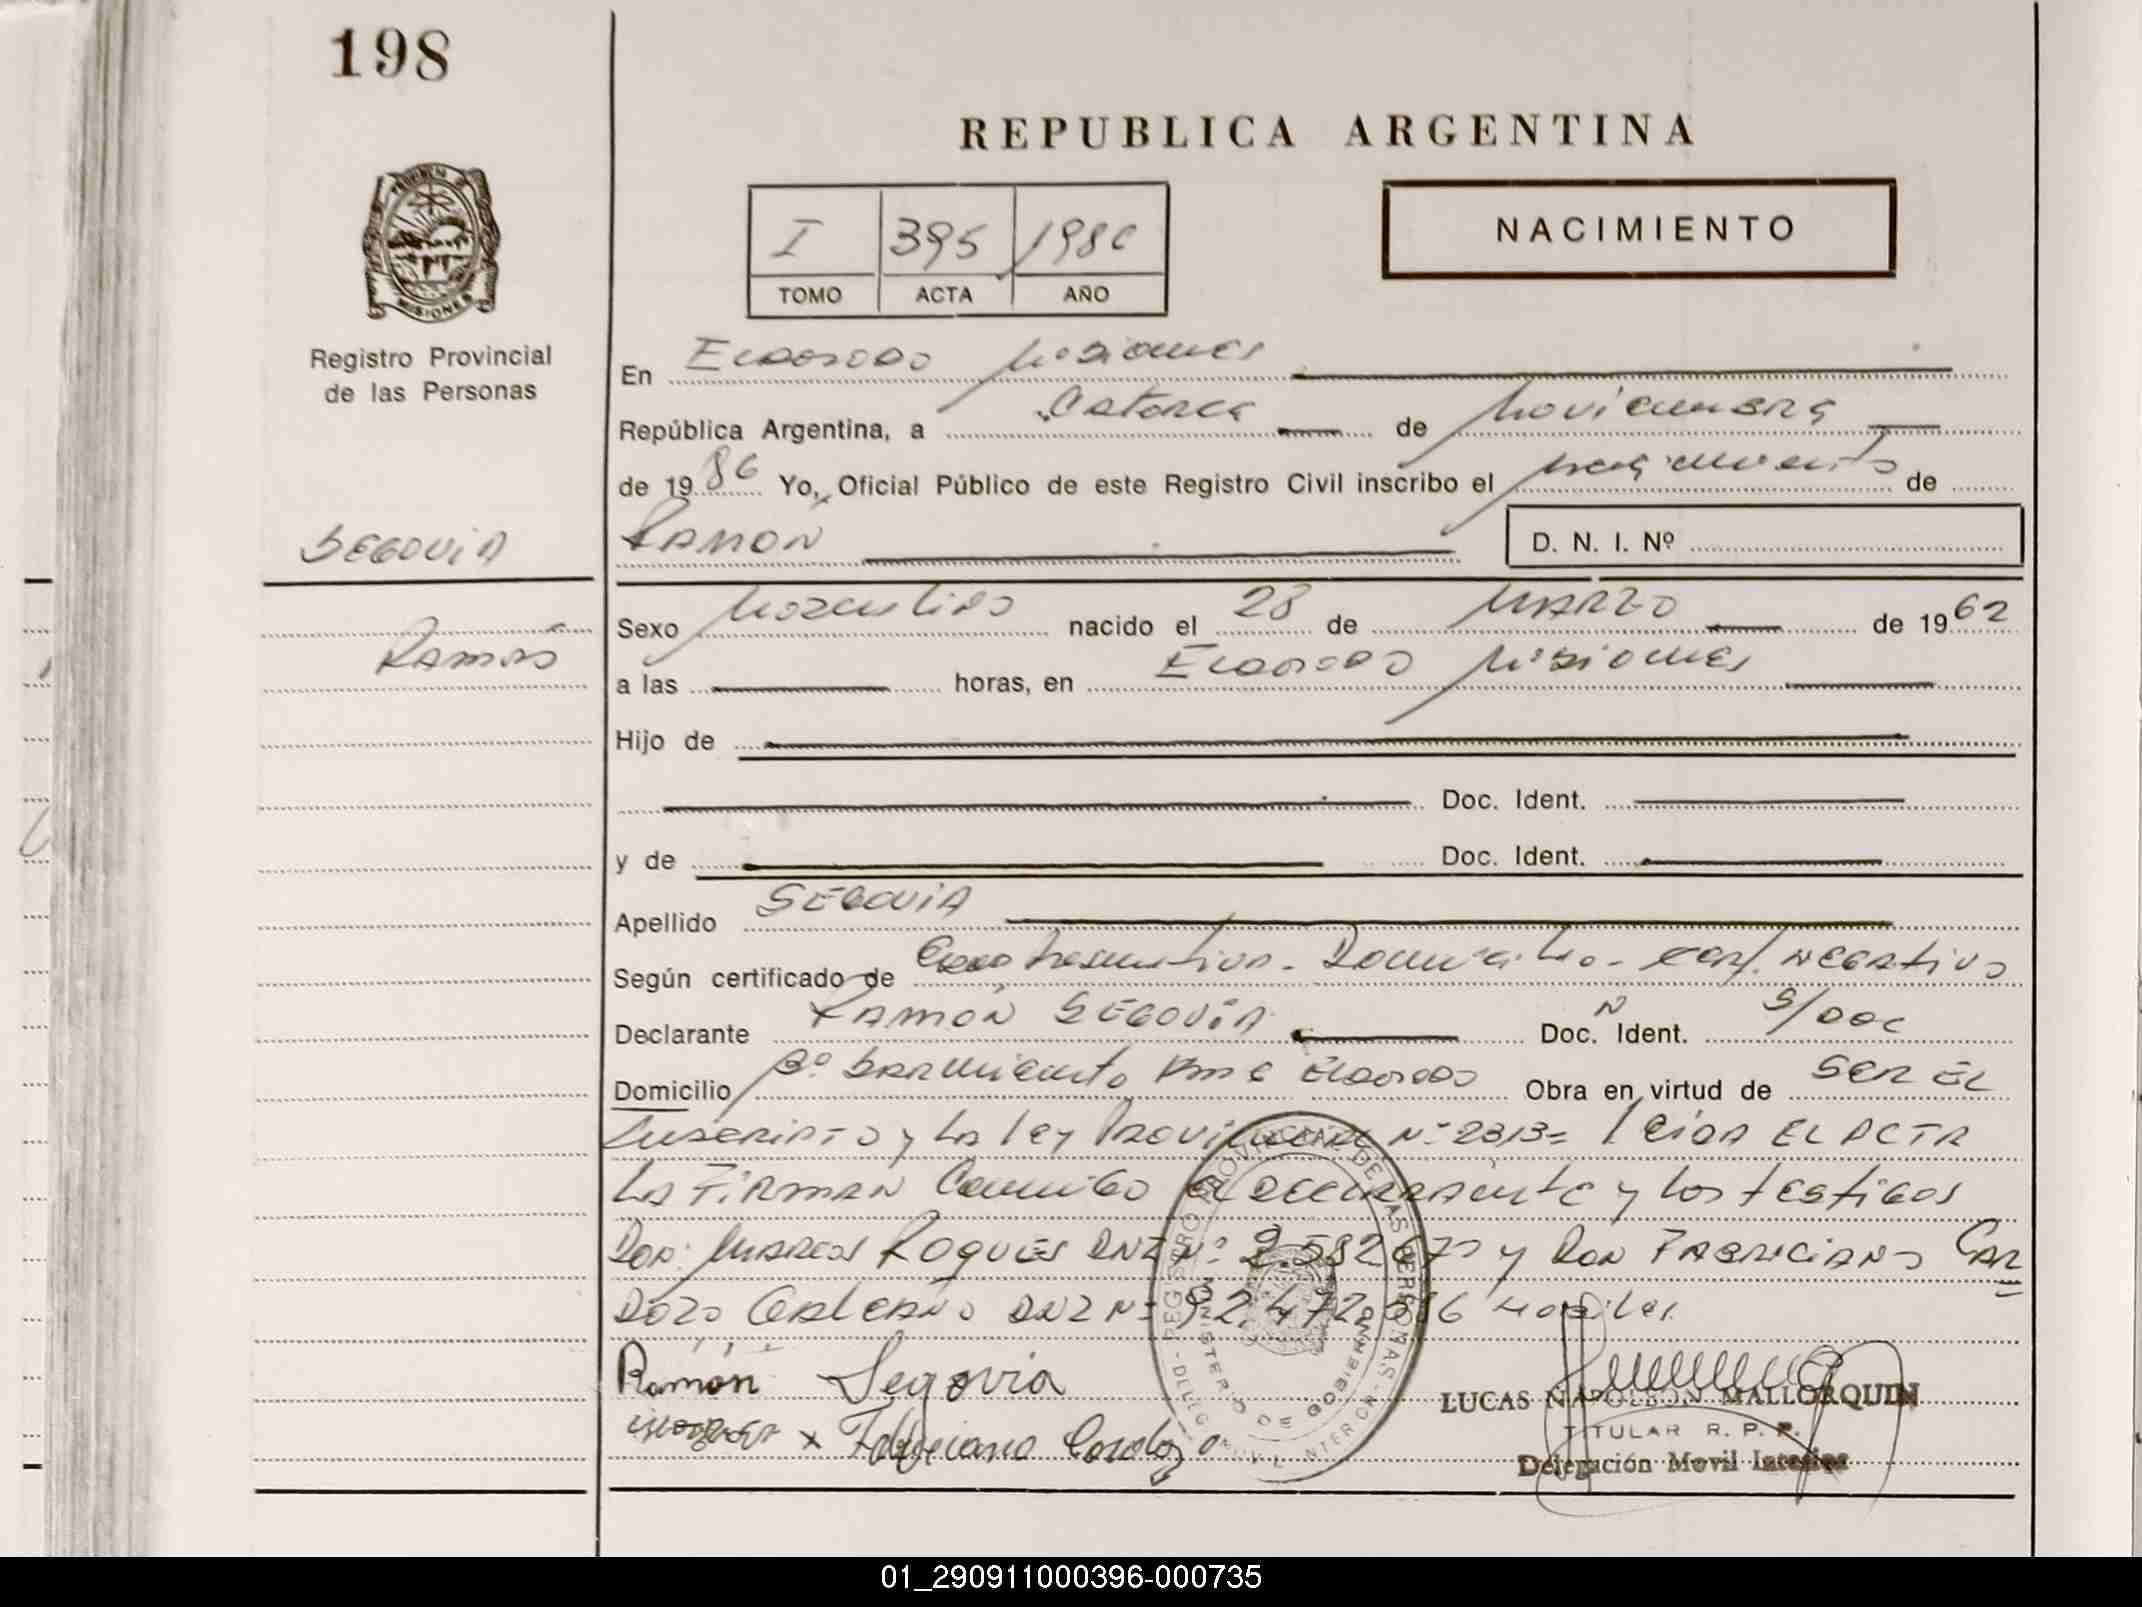 198
REPUBLICA ARGENTINA
I 395 1986
TOMO ACTA AÑO
NACIMIENTO
PROVINCIA DE
MISIONES
Registro Provincial
de las Personas
En Eldorado Misiones
República Argentina, a Catorce de Noviembre
de 1986 Yo, Oficial Público de este Registro Civil inscribo el nacimiento de
SEGOVIA
RAMON
D. N. I. Nº
Ramón
Sexo Masculino nacido el 28 de MARZO de 1962
a las horas, en Eldorado Misiones
Hijo de
Doc. Ident.
y de Doc. Ident.
Apellido SEGOVIA
Según certificado de Domicilio - cert. NEGATIVO
Declarante RAMÓN SEGOVIA Doc. Ident. S/DOC
Domicilio Bº SARMIENTO Eldorado Obra en virtud de SER EL
Inscripto y la ley Provincial Nº 2313= leída EL ACTA
LA FIRMAN Conmigo el declarante y los testigos
Don: Marcos Roques DNI Nº y Don FABRICIANO CAR
DOZO GALEANO DNI Nº 92.472. hábiles
Ramón Segovia
x Fabriciano Cardozo
REGISTRO PROVINCIAL DE LAS PERSONAS
MINISTERIO DE GOBIERNO
LUCAS NAPOLEON MALLORQUIN
TITULAR R. P. P.
Delegación Movil Interior
01_290911000396-000735